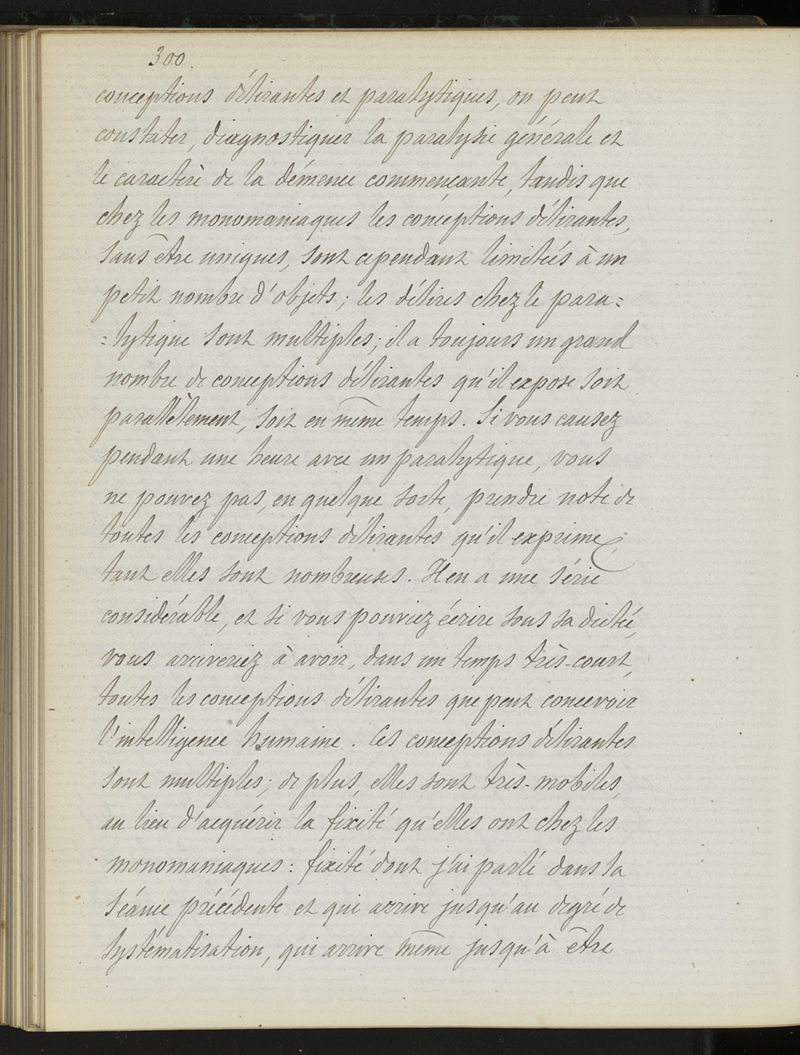 300.
conceptions délirantes et paralytiques, on peut
constater, diagnostiquer la paralysie générale et
le caractère de la démence commençante, tandis que
chez les monomaniaques les conceptions délirantes,
sans être uniques, sont cependant limitées à un
petit nombre d'objets; les délires chez le para=
=lytique sont multiples; il a toujours un grand
nombre de conceptions délirantes qu'il expose soit
parallèlement, soit en même temps. Si vous causez
pendant une heure avec un paralytique, vous
ne pouvez pas, en quelque sorte, prendre note de
toutes les conceptions délirantes qu'il exprime,
tant elles sont nombreuses. Il en a une série
considérable, et si vous pouviez écrire sous sa dictée,
vous arriveriez à avoir, dans un temps très-court,
toutes les conceptions délirantes que peut concevoir
l'intelligence humaine. Ces conceptions délirantes
sont multiples; de plus, elles sont très-mobiles,
au lieu d'acquérir la fixité qu'elles ont chez les
monomaniaques: fixité dont j'ai parlé dans la
séance précédente et qui arrive jusqu'au degré de
systématisation, qui arrive même jusqu'à être